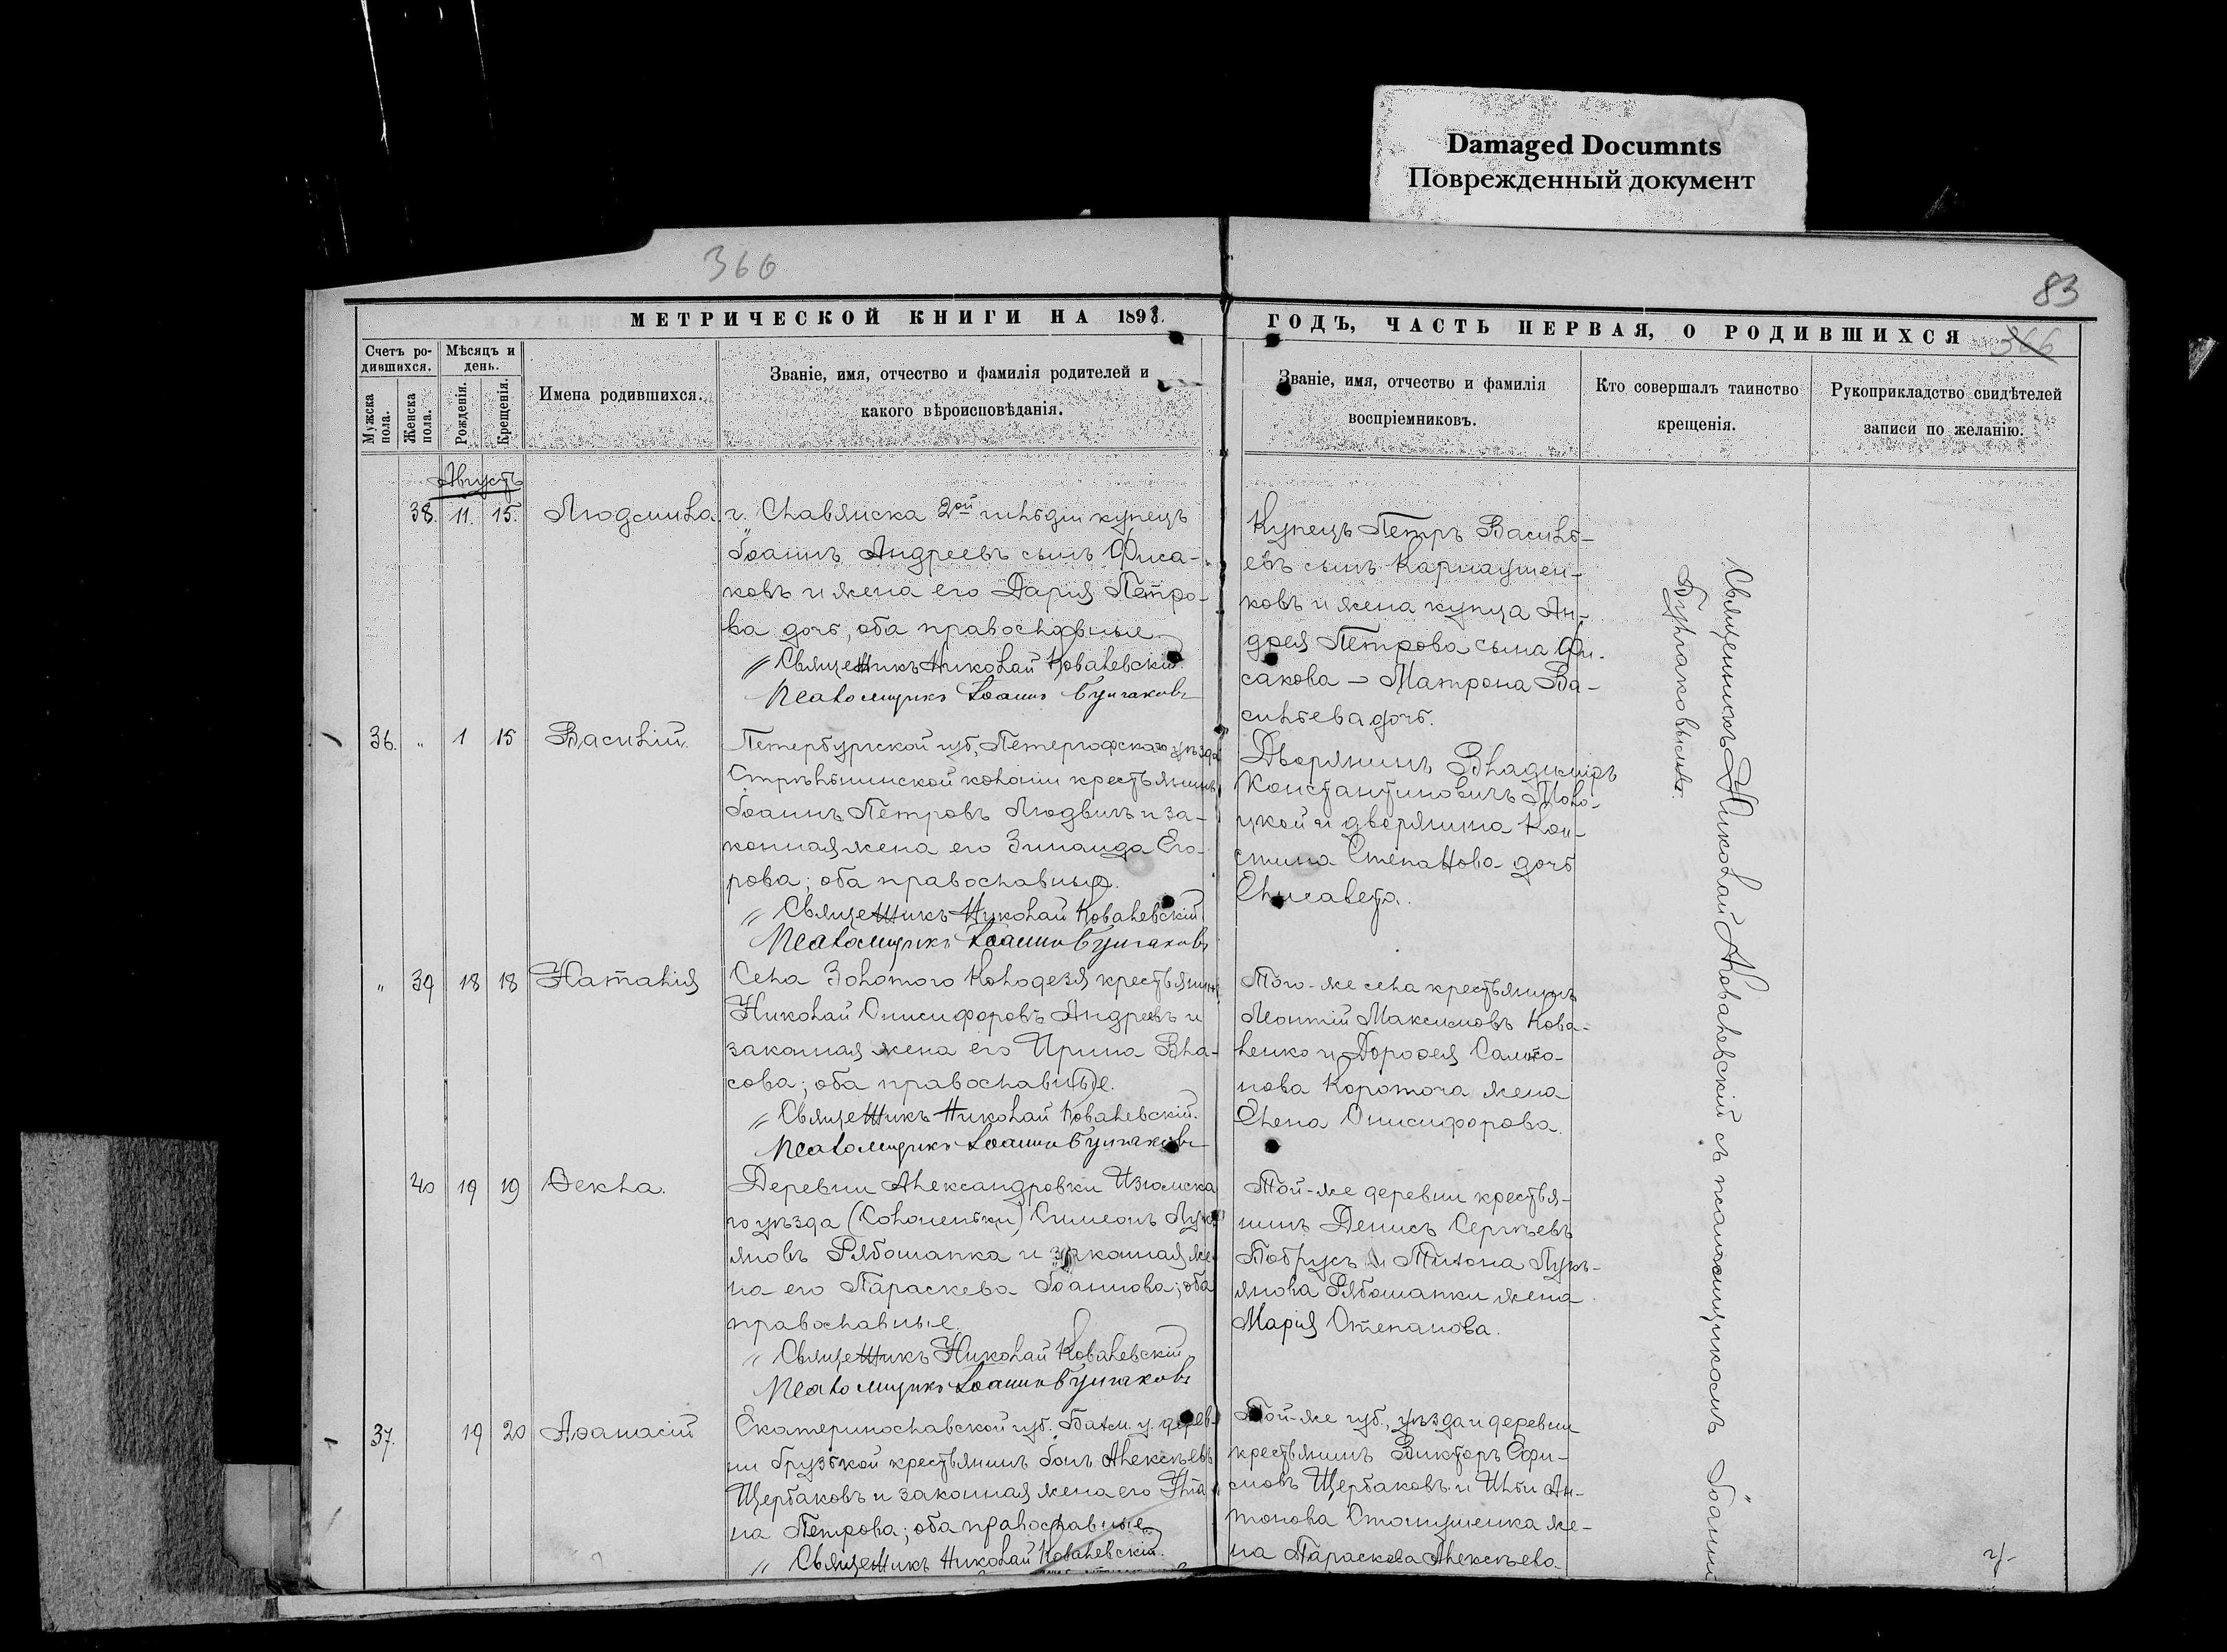 Damaged Documnts
Поврежденный документ
366
83
МЕТРИЧЕСКОЙ КНИГИ НА 1898.
ГОДЪ, ЧАСТЬ ПЕРВАЯ, О РОДИВШИХСЯ
366
Счетъ ро-
дившихся.
Мѣсяцъ и
день.
Мужска
пола.
Женска
пола.
Рожденія.
Крещенія.
Имена родившихся.
Званіе, имя, отчество и фамилія родителей и
какого вѣроисповѣданія.
Званіе, имя, отчество и фамилія
воспріемниковъ.
Кто совершалъ таинство
крещенія.
Рукоприкладство свидѣтелей
записи по желанію.
Августъ
38. 11. 15. Людмила.
г. Славянска 2ой гильдіи купецъ
Іоаннъ Андреевъ сынъ Фиса-
ковъ и жена его Дарія Петро-
ва дочь, оба православные
Священникъ Николай Ковалевскій.
Псаломщикъ Іоаннъ Булгаковъ
Купецъ Петръ Василь-
евъ сынъ Карнаушен-
ковъ и жена купца Ан-
дрея Петрова сына Фи-
сакова – Матрона Ва-
сильева дочь.
36. " 1 15 Василій.
Петербургской губ., Петергофскаго уѣзда
Стрѣльнинской колоніи крестьянинъ
Іоаннъ Петровъ Людвигъ и за-
конная жена его Зинаида Его-
рова; оба православные.
Священникъ Николай Ковалевскій
Псаломщикъ Іоаннъ Булгаковъ
Дворянинъ Владиміръ
Константиновичъ
и дворянина Кон-
Степанова дочь
Елисавета.
" 39 18 18 Наталія
Села Золотого Колодезя крестьянинъ
Николай Онисифоровъ Андреевъ и
законная жена его Ирина Вла-
сова; оба православные.
Священникъ Николай Ковалевскій.
Псаломщикъ Іоаннъ Булгаковъ
Того-же села крестьянинъ
Леонтій Максимовъ Кова-
ленко и Дороѳея
Короточа жена
Елена Онисифорова.
40 19 19 Ѳекла.
Деревни Александровки Изюмска
го уѣзда (Солоненьки) Симеонъ Лукь
яновъ Рябошапка и законная же
на его Параскева Іоаннова; оба
православные.
Священникъ Николай Ковалевскій
Псаломщикъ Іоаннъ Булгаковъ
Той-же деревни крестья-
нинъ Денисъ Сергѣевъ
и Лукь-
янова Рябошапки жена
Марія Степанова.
37. 19 20 Аѳанасій
Екатеринославской губ. Бахм. у. дерев-
ни крестьянинъ Алексѣевъ
Щербаковъ и законная жена его
Петрова; оба православные
Священникъ Николай Ковалевскій.
Той-же губ., уѣзда и деревни
крестьянинъ Викторъ Ефи-
мовъ Щербаковъ и Ильи Ан-
тонова же-
на Параскева Алексѣева
Священникъ Николай Ковалевскій съ псаломщикомъ Іоанномъ
Булгаковымъ.